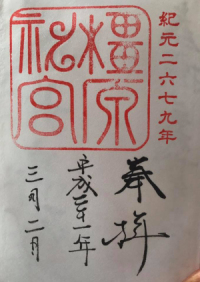 紀元二六七九年
橿原
神宮
奉拝
平成三十一年
三月二日